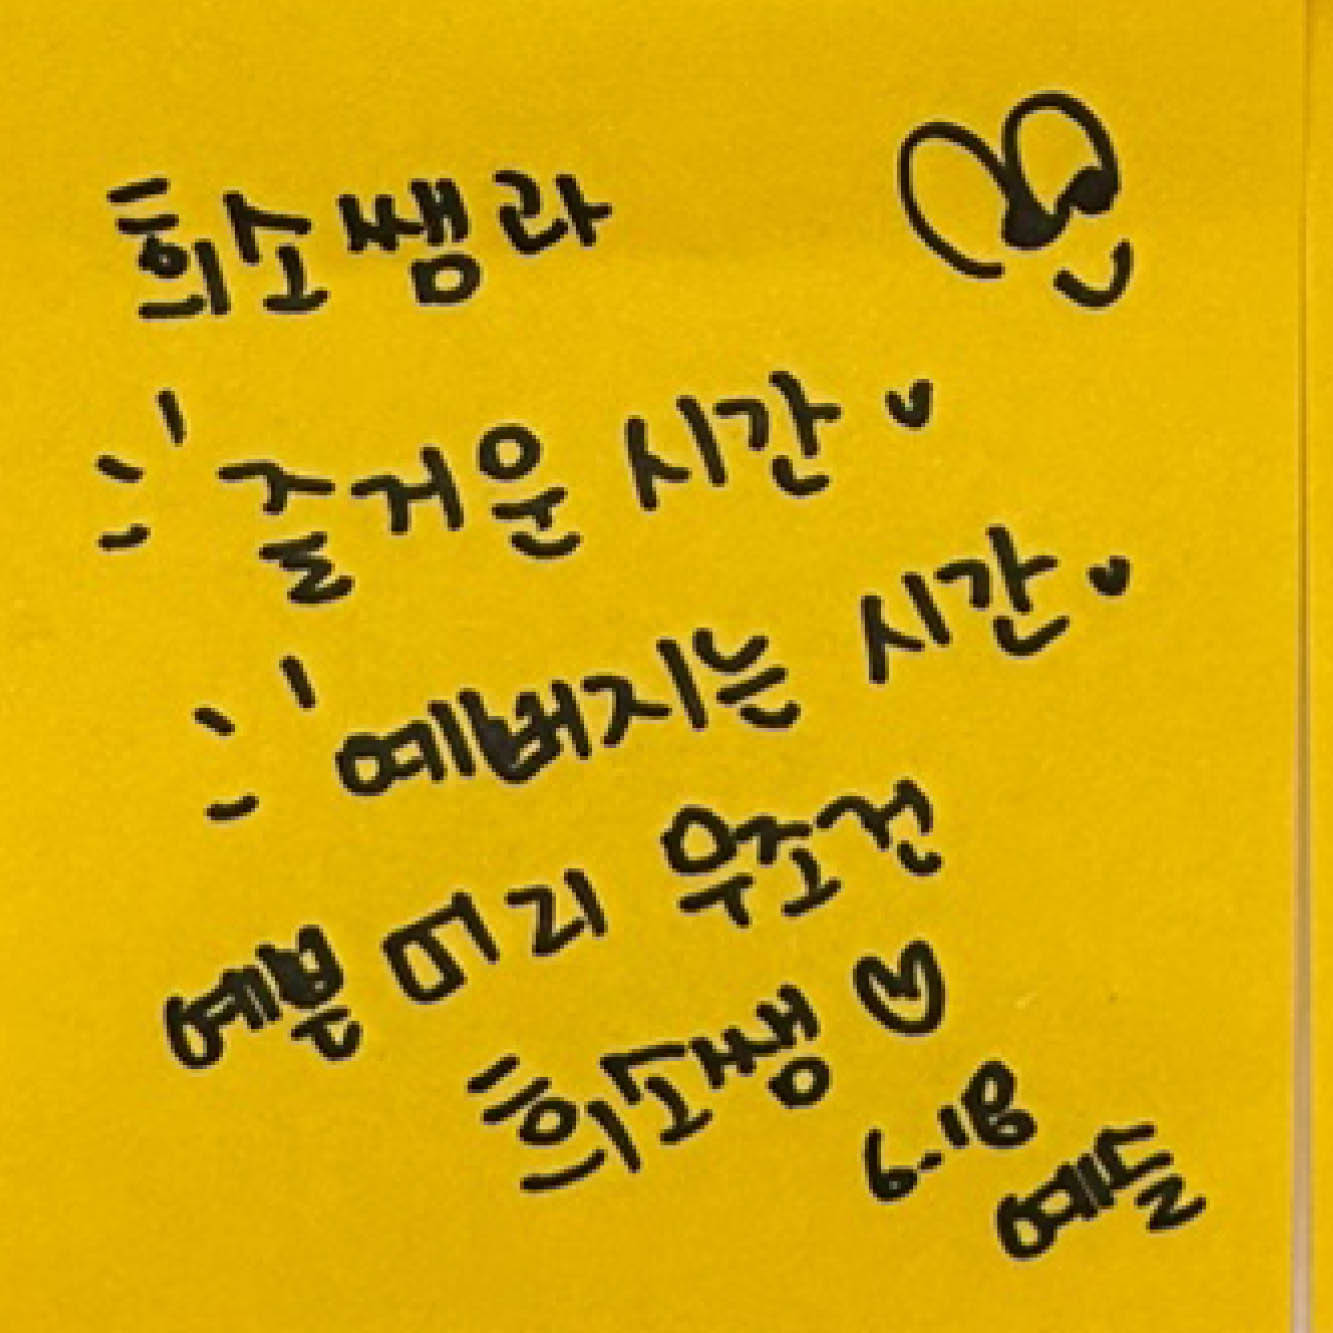 희소쌤과
즐거운 시간
예뻐지는 시간
예쁜 머리 무조건
희소쌤
6-18
예슬